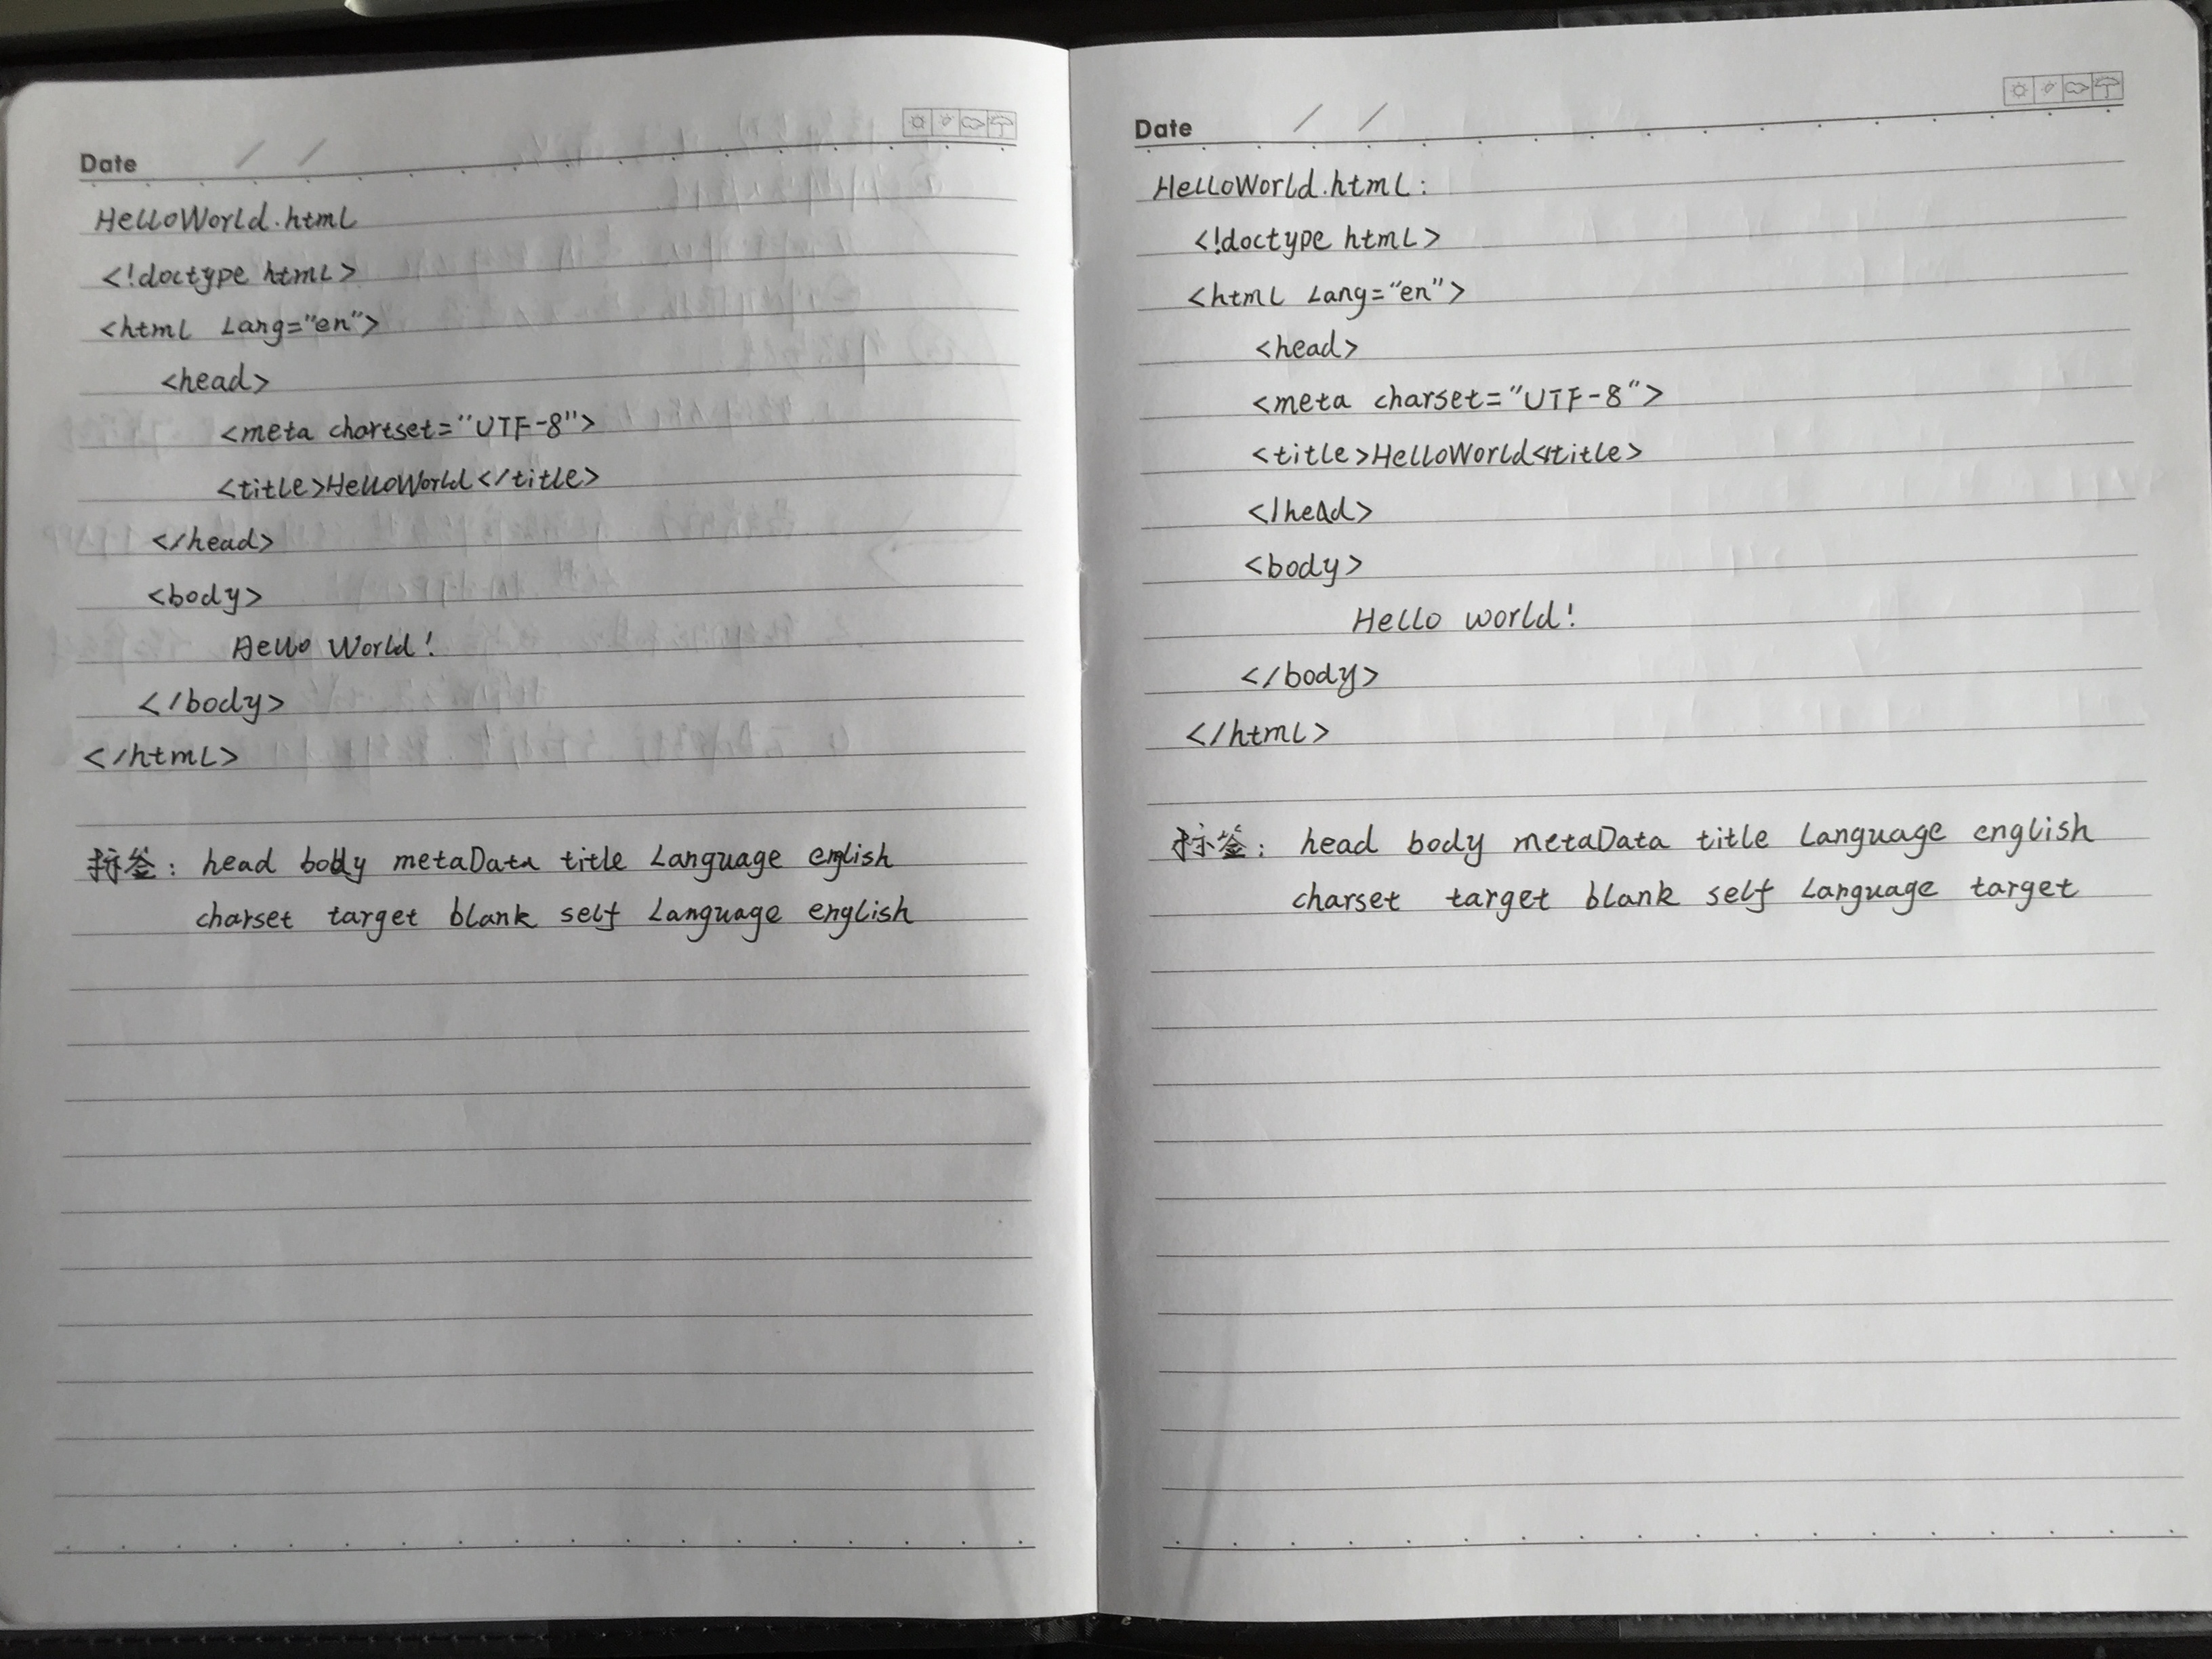 Date / /
HelloWorld.html
<!doctype html>
<html Lang="en">
<head>
<meta chartset="UTF-8">
<title>HelloWorld</title>
</head>
<body>
Hello World!
</body>
</html>
标签: head body metaData title Language english
charset target blank self Language english
Date / /
HelloWorld.html:
<!doctype html>
<html Lang="en">
<head>
<meta charset="UTF-8">
<title>HelloWorld</title>
</head>
<body>
Hello world!
</body>
</html>
标签: head body metaData title Language english
charset target blank self Language target